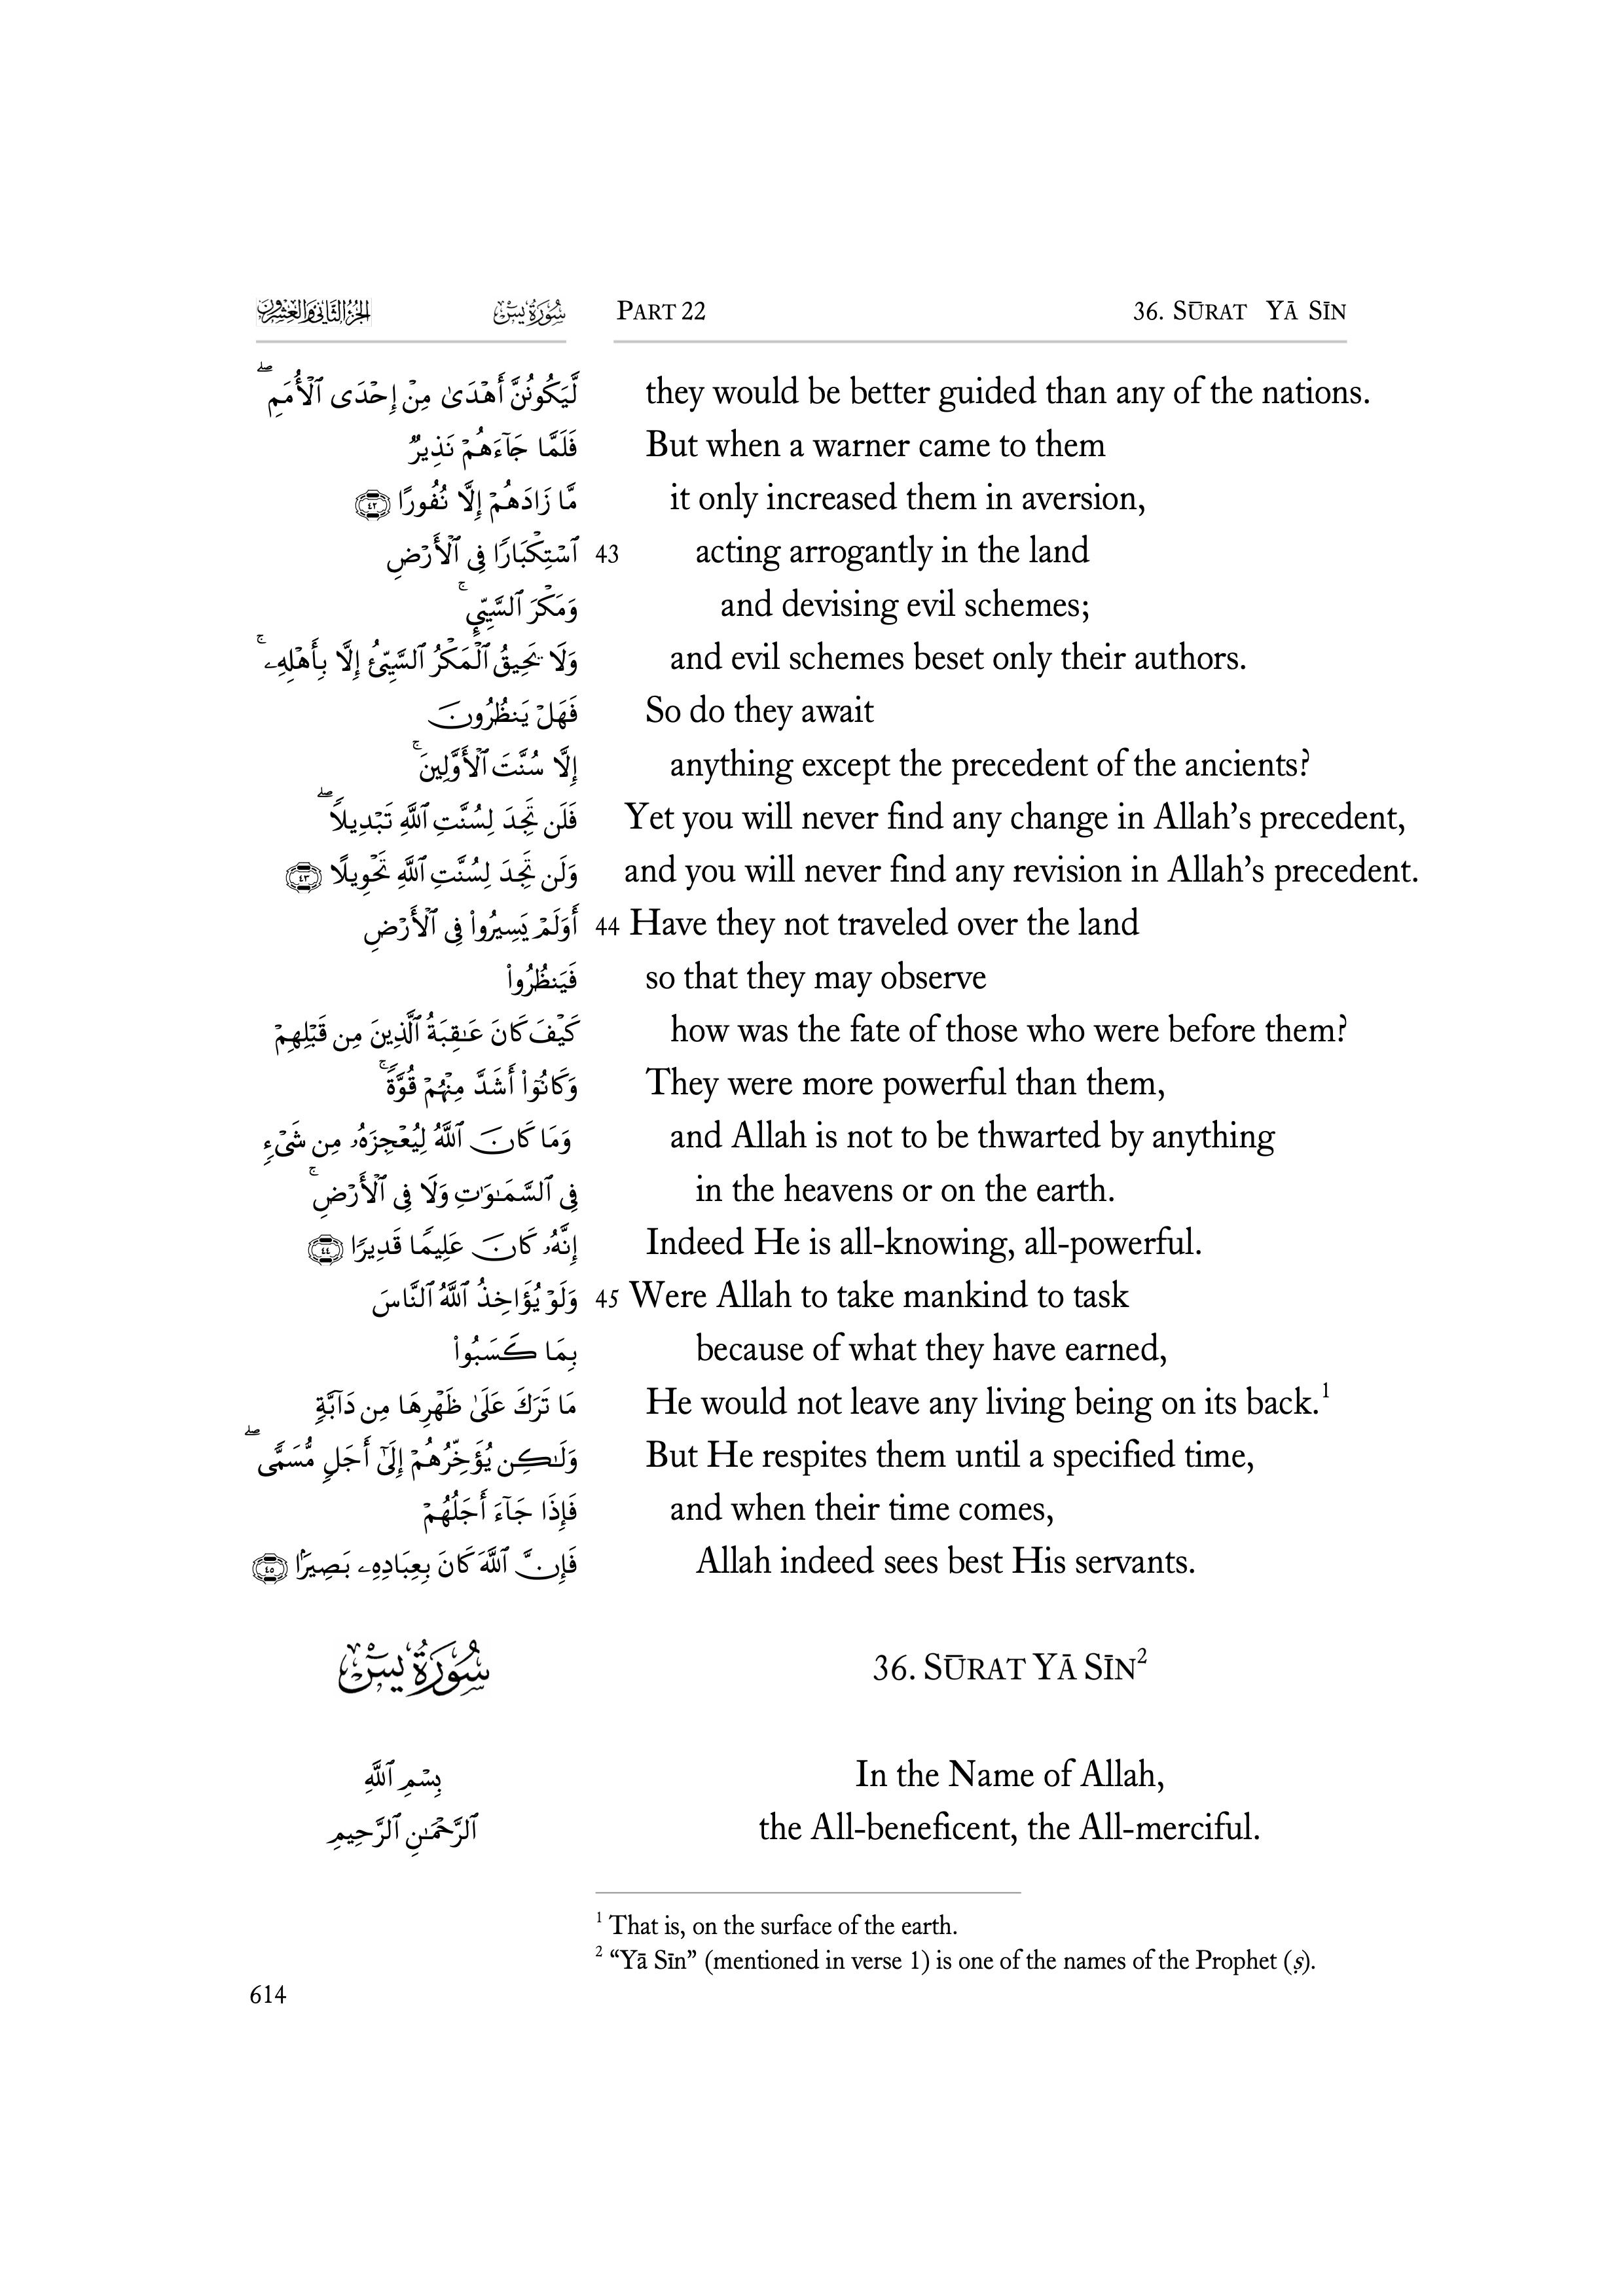 الجزء الثاني والعشرون سورة يس PART 22 36. SŪRAT YĀ SĪN
لَّيَكُونُنَّ أَهْدَىٰ مِنْ إِحْدَى ٱلْأُمَمِ ۖ they would be better guided than any of the nations.
فَلَمَّا جَآءَهُمْ نَذِيرٌ But when a warner came to them
مَّا زَادَهُمْ إِلَّا نُفُورًا ﴿٤٢﴾ it only increased them in aversion,
ٱسْتِكْبَارًا فِى ٱلْأَرْضِ 43 acting arrogantly in the land
وَمَكْرَ ٱلسَّيِّئِ ۚ and devising evil schemes;
وَلَا يَحِيقُ ٱلْمَكْرُ ٱلسَّيِّئُ إِلَّا بِأَهْلِهِۦ ۚ and evil schemes beset only their authors.
فَهَلْ يَنظُرُونَ So do they await
إِلَّا سُنَّتَ ٱلْأَوَّلِينَ ۚ anything except the precedent of the ancients?
فَلَن تَجِدَ لِسُنَّتِ ٱللَّهِ تَبْدِيلًا ۖ Yet you will never find any change in Allah’s precedent,
وَلَن تَجِدَ لِسُنَّتِ ٱللَّهِ تَحْوِيلًا ﴿٤٣﴾ and you will never find any revision in Allah’s precedent.
أَوَلَمْ يَسِيرُوا۟ فِى ٱلْأَرْضِ 44 Have they not traveled over the land
فَيَنظُرُوا۟ so that they may observe
كَيْفَ كَانَ عَـٰقِبَةُ ٱلَّذِينَ مِن قَبْلِهِمْ how was the fate of those who were before them?
وَكَانُوٓا۟ أَشَدَّ مِنْهُمْ قُوَّةً ۚ They were more powerful than them,
وَمَا كَانَ ٱللَّهُ لِيُعْجِزَهُۥ مِن شَىْءٍ and Allah is not to be thwarted by anything
فِى ٱلسَّمَـٰوَٰتِ وَلَا فِى ٱلْأَرْضِ ۚ in the heavens or on the earth.
إِنَّهُۥ كَانَ عَلِيمًا قَدِيرًا ﴿٤٤﴾ Indeed He is all-knowing, all-powerful.
وَلَوْ يُؤَاخِذُ ٱللَّهُ ٱلنَّاسَ 45 Were Allah to take mankind to task
بِمَا كَسَبُوا۟ because of what they have earned,
مَا تَرَكَ عَلَىٰ ظَهْرِهَا مِن دَآبَّةٍ He would not leave any living being on its back.1
وَلَـٰكِن يُؤَخِّرُهُمْ إِلَىٰٓ أَجَلٍ مُّسَمًّى ۖ But He respites them until a specified time,
فَإِذَا جَآءَ أَجَلُهُمْ and when their time comes,
فَإِنَّ ٱللَّهَ كَانَ بِعِبَادِهِۦ بَصِيرًۢا ﴿٤٥﴾ Allah indeed sees best His servants.
سُورَةُ يسٓ 36. SŪRAT YĀ SĪN2
بِسْمِ ٱللَّهِ In the Name of Allah,
ٱلرَّحْمَـٰنِ ٱلرَّحِيمِ the All-beneficent, the All-merciful.
1 That is, on the surface of the earth.
2 “Yā Sīn” (mentioned in verse 1) is one of the names of the Prophet (ṣ).
614